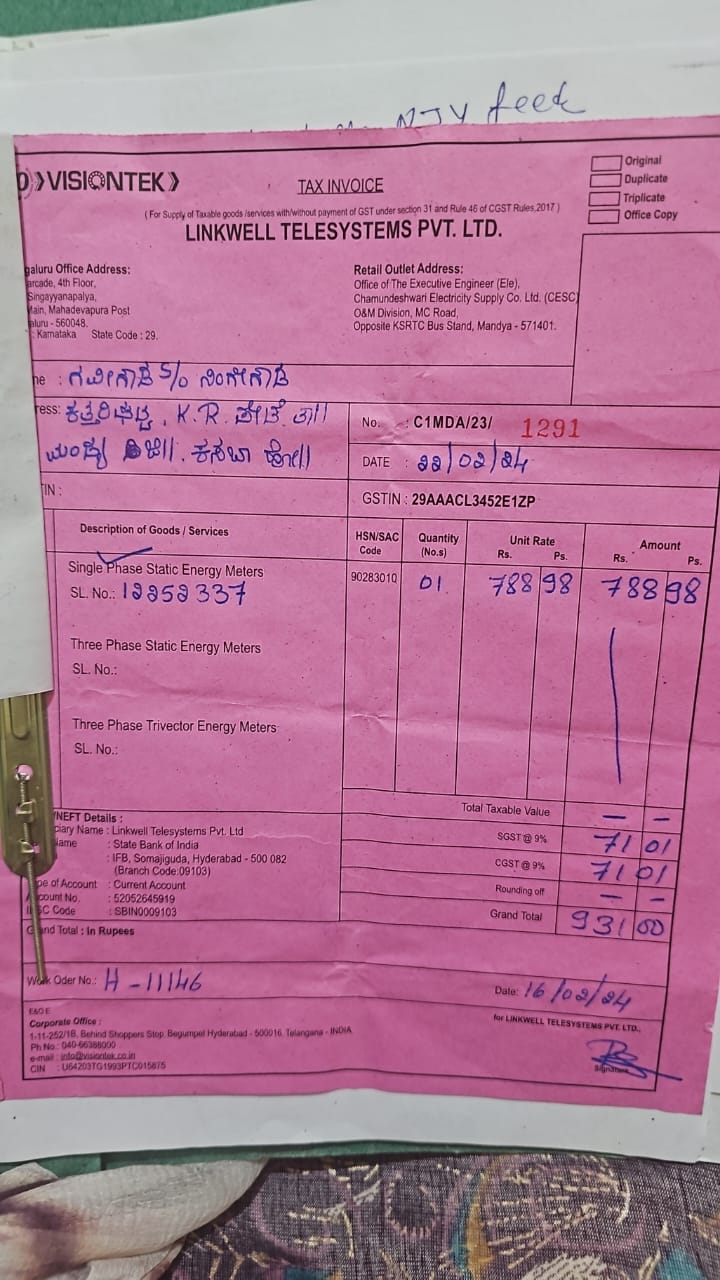 NJY feek
VISIONTEK
TAX INVOICE
Original
Duplicate
Triplicate
Office Copy
( For Supply of Taxable goods /services with/without payment of GST under section 31 and Rule 46 of CGST Rules,2017 )
LINKWELL TELESYSTEMS PVT. LTD.
galuru Office Address:
arcade, 4th Floor,
Singayyanapalya,
Main, Mahadevapura Post
aluru - 560048.
: Karnataka State Code : 29.
Retail Outlet Address:
Office of The Executive Engineer (Ele),
Chamundeshwari Electricity Supply Co. Ltd. (CESC)
O&M Division, MC Road,
Opposite KSRTC Bus Stand, Mandya - 571401.
me : ಗವೀಗೌಡ S/o ನಿಂಗೇಗೌಡ
ress: ಕತ್ತರಿಘಟ್ಟ, K.R. ಪೇಟೆ ತಾ||
ಮಂಡ್ಯ ಜಿ||. ಕಸಬಾ ಹೋ||
No. : C1MDA/23/ 1291
DATE : 22/02/24
TIN :
GSTIN : 29AAACL3452E1ZP
Description of Goods / Services HSN/SAC Code Quantity (No.s) Unit Rate Rs. Ps. Amount Rs. Ps.
Single Phase Static Energy Meters 90283010 01 788 98 788 98
SL. No.: 12252337
Three Phase Static Energy Meters
SL. No.:
Three Phase Trivector Energy Meters
SL. No.:
Total Taxable Value — —
SGST @ 9% 71 01
CGST @ 9% 71 01
Rounding off — —
Grand Total 931 00
/NEFT Details :
ciary Name : Linkwell Telesystems Pvt. Ltd
Name : State Bank of India
: IFB, Somajiguda, Hyderabad - 500 082
(Branch Code:09103)
pe of Account : Current Account
Account No. : 52052645919
IFSC Code : SBIN0009103
Grand Total : In Rupees
Work Oder No.: H-11146
Date: 16/02/24
E&O E
Corporate Office :
1-11-252/1B, Behind Shoppers Stop, Begumpet Hyderabad - 500016. Telangana - INDIA
Ph No.: 040-66388000
e-mail : info@visiontek.co.in
CIN : U64203TG1993PTC015875
for LINKWELL TELESYSTEMS PVT. LTD.,
Signature